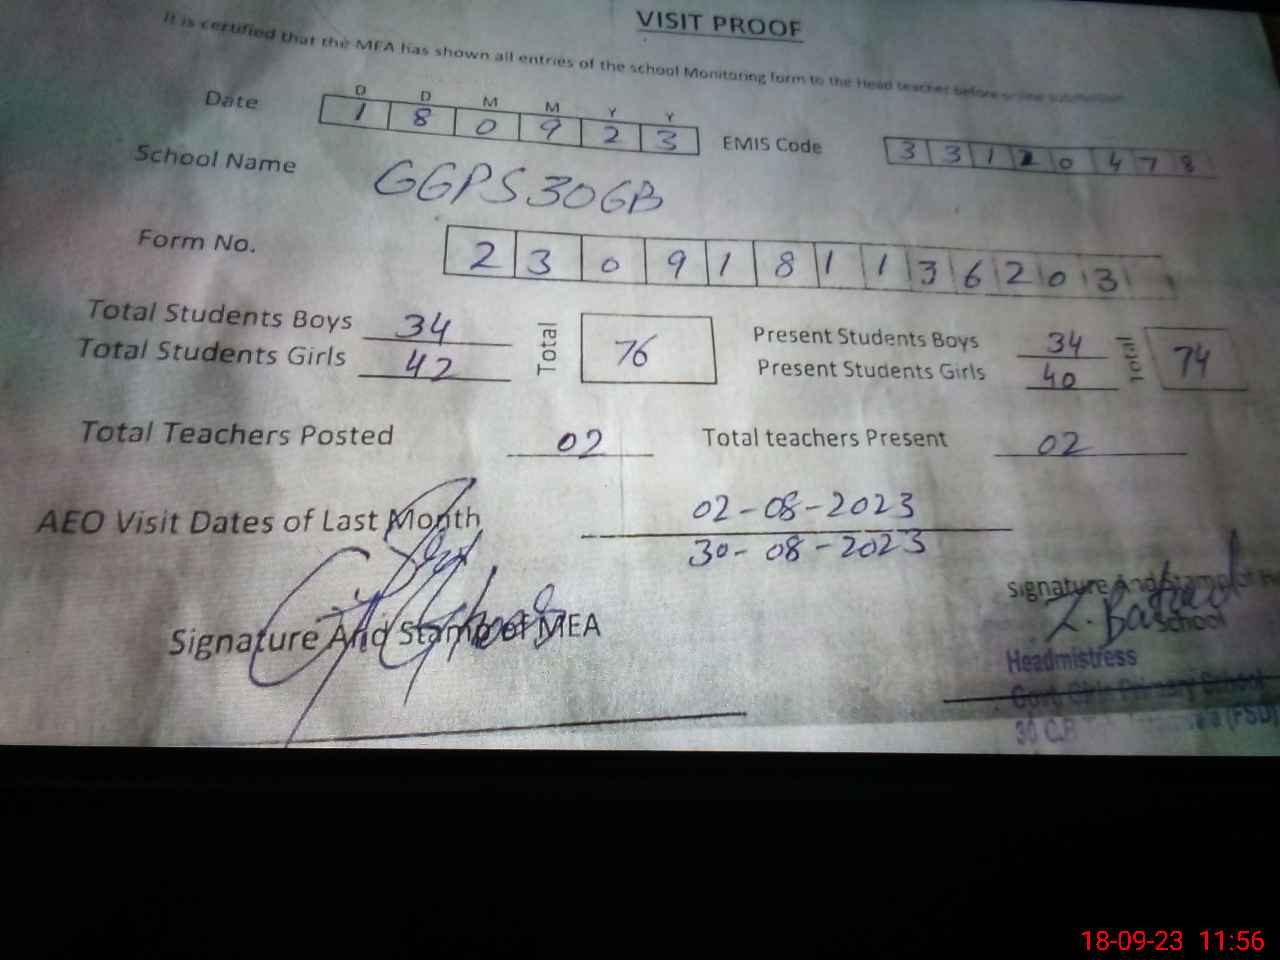 VISIT PROOF
It is certified that the MEA has shown all entries of the school Monitoring form to the Head teacher before online submission
D D M M Y Y
Date 1 8 0 9 2 3 EMIS Code 3 3 1 2 0 4 7 8
School Name GGPS 30GB
Form No. 2 3 0 9 1 8 1 1 3 6 2 0 3
Total Students Boys 34 Total 76 Present Students Boys 34 Total 74
Total Students Girls 42 Present Students Girls 40
Total Teachers Posted 02 Total teachers Present 02
AEO Visit Dates of Last Month 02-08-2023
30-08-2023
Signature And Stamp of MEA
Signature And Stamp of
School
Headmistress
Govt. Girls Primary School
30 (FSD)
18-09-23 11:56